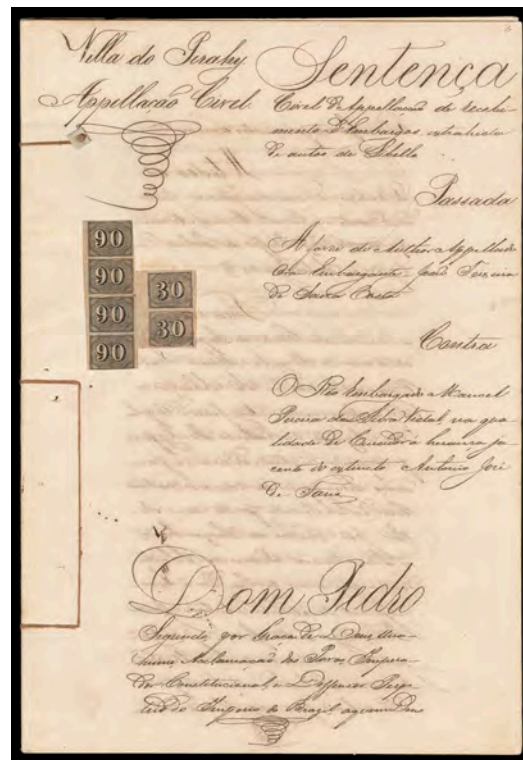 Villa do Pirahy.
Appellação Civel.
Sentença
Civel de Appellação de recebi-
mento d'Embargos, extrahida
de autos de Libello
Passada
A favor do Author Appellado
ora Embargante José Teixeira
de
Contra
O Réo Embargado Manoel
Pereira da Silva Vidal, na qua-
lidade de Curador à herança ja-
cente do extincto Antonio José
de Faria
90
90
90
90
30
30
Dom Pedro
Segundo, por Graça de Deos, Una-
nime Acclamação dos Povos, Impera-
dor Constitucional, e Deffensor Perpe-
tuo do Imperio do Brazil